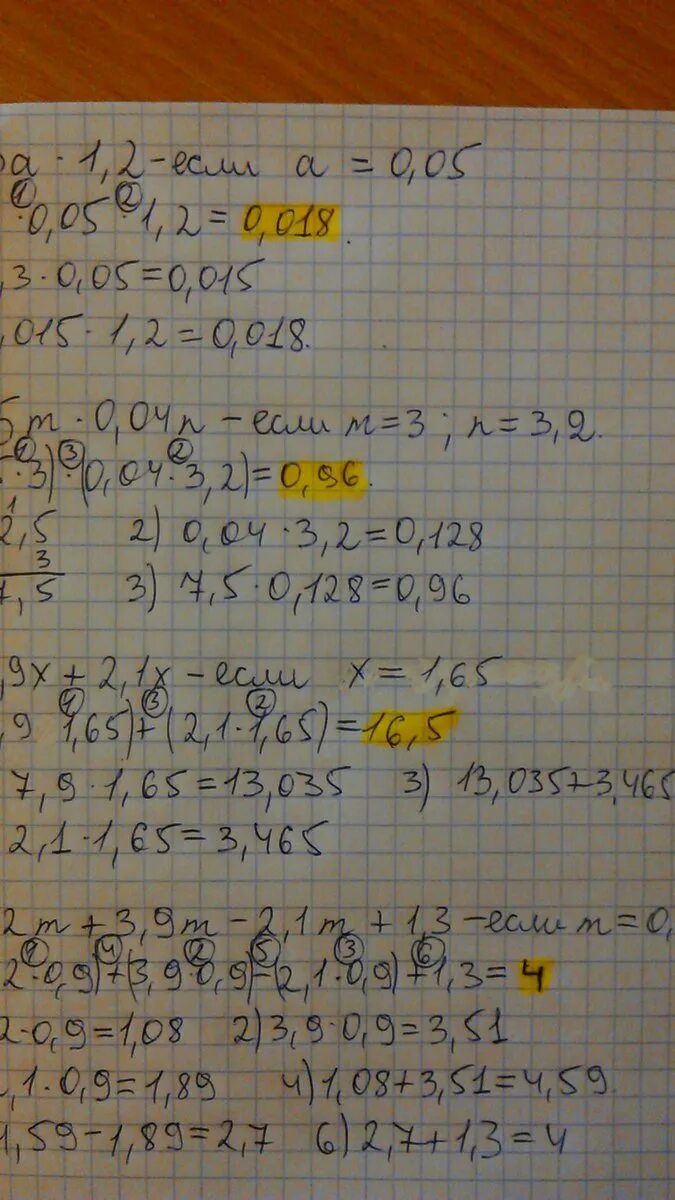 a · 1,2 - если a = 0,05
① ②
· 0,05 · 1,2 = 0,018.
,3 · 0,05 = 0,015
,015 · 1,2 = 0,018.
5m · 0,04n - если m = 3 ; n = 3,2.
① ③ ②
· 3) · (0,04 · 3,2) = 0,96.
1
2,5 2) 0,04 · 3,2 = 0,128
3
7,5 3) 7,5 · 0,128 = 0,96
,9x + 2,1x - если x = 1,65
① ③ ②
,9 1,65) + (2,1 · 1,65) = 16,5
7,9 · 1,65 = 13,035 3) 13,035 + 3,465
2,1 · 1,65 = 3,465
2m + 3,9m - 2,1m + 1,3 - если m = 0,
① ④ ② ⑤ ③ ⑥
2 · 0,9) + (3,9 · 0,9) - (2,1 · 0,9) + 1,3 = 4
2 · 0,9 = 1,08 2) 3,9 · 0,9 = 3,51
,1 · 0,9 = 1,89 4) 1,08 + 3,51 = 4,59.
4,59 - 1,89 = 2,7 6) 2,7 + 1,3 = 4